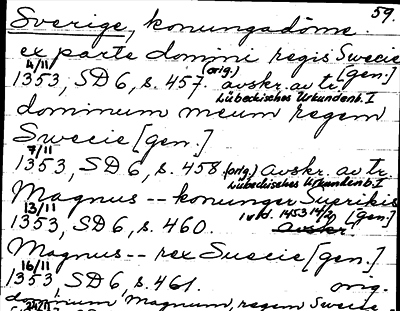 59.
Sverige, konungadöme.
ex parte domini regis Swecie
4/11 (orig.) [gen.]
1353, SD 6, s. 457. avskr. av tr.
Lübeckisches Urkundenb. I
dominum meum regem
Swecie [gen.]
7/11
1353, SD 6, s. 458 (orig.) avskr. av tr.
Lübeckisches Urkundenb. I
Magnus -- konunger Suerikis
13/11 [gen.]
1353, SD 6, s. 460. avskr.
Magnus -- rex Suecie [gen.]
16/11
1353, SD 6, s. 461. orig.
dominum Magnum, regem Swecie